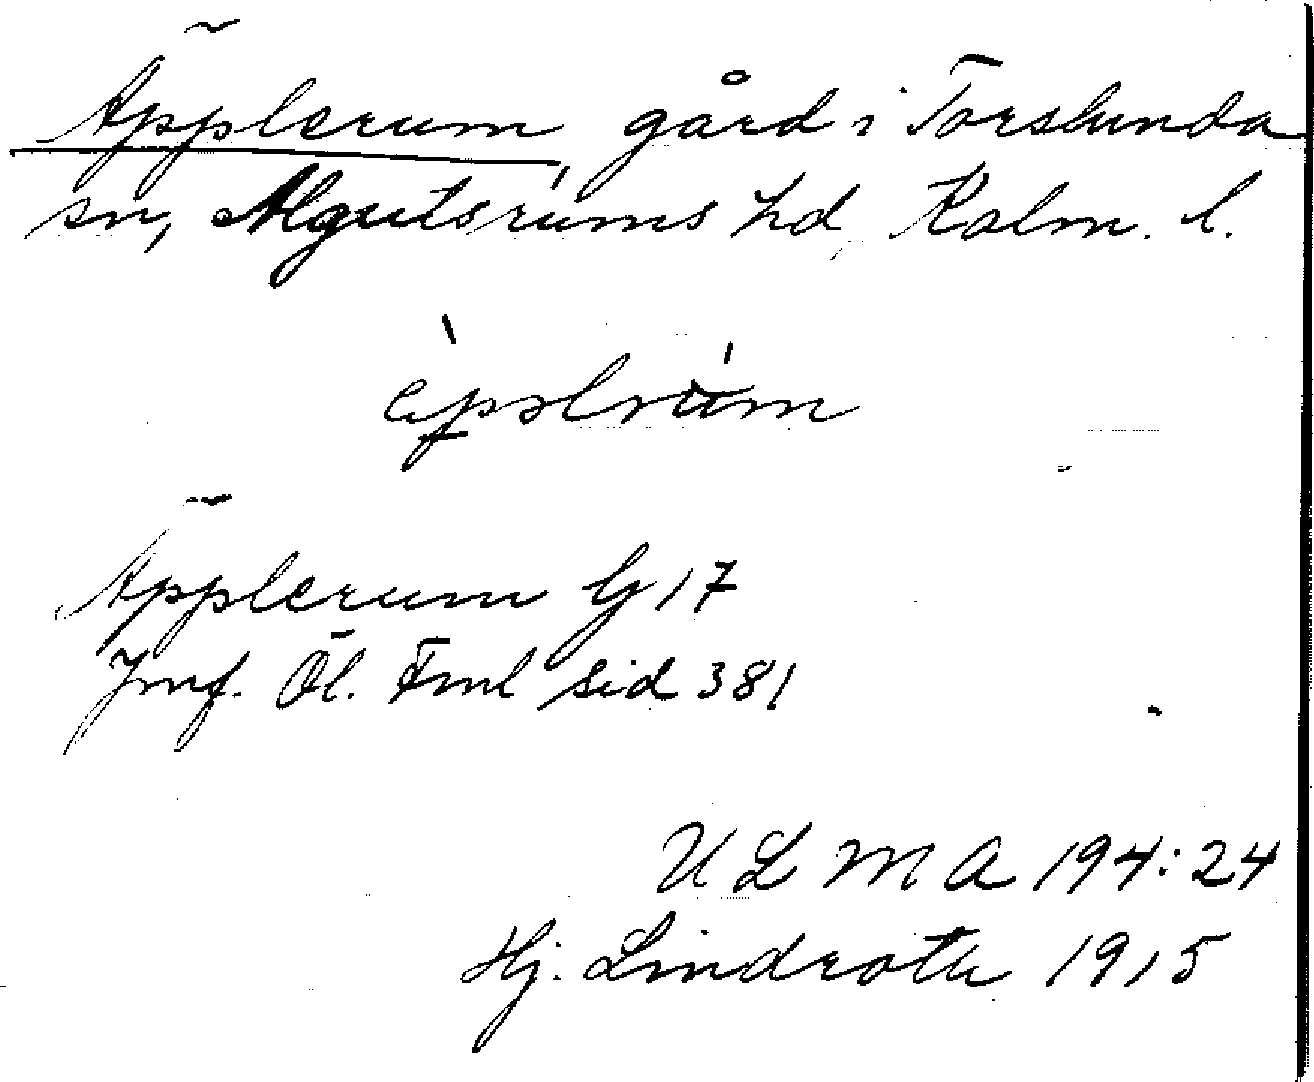 Äpplerum, gård i Torslunda
sn, Algutsrums hd, Kalm. l.
Äpplerum G 17
Jmf. Öl. Fml sid 381
ULMA 194:24
Hj. Lindroth 1915